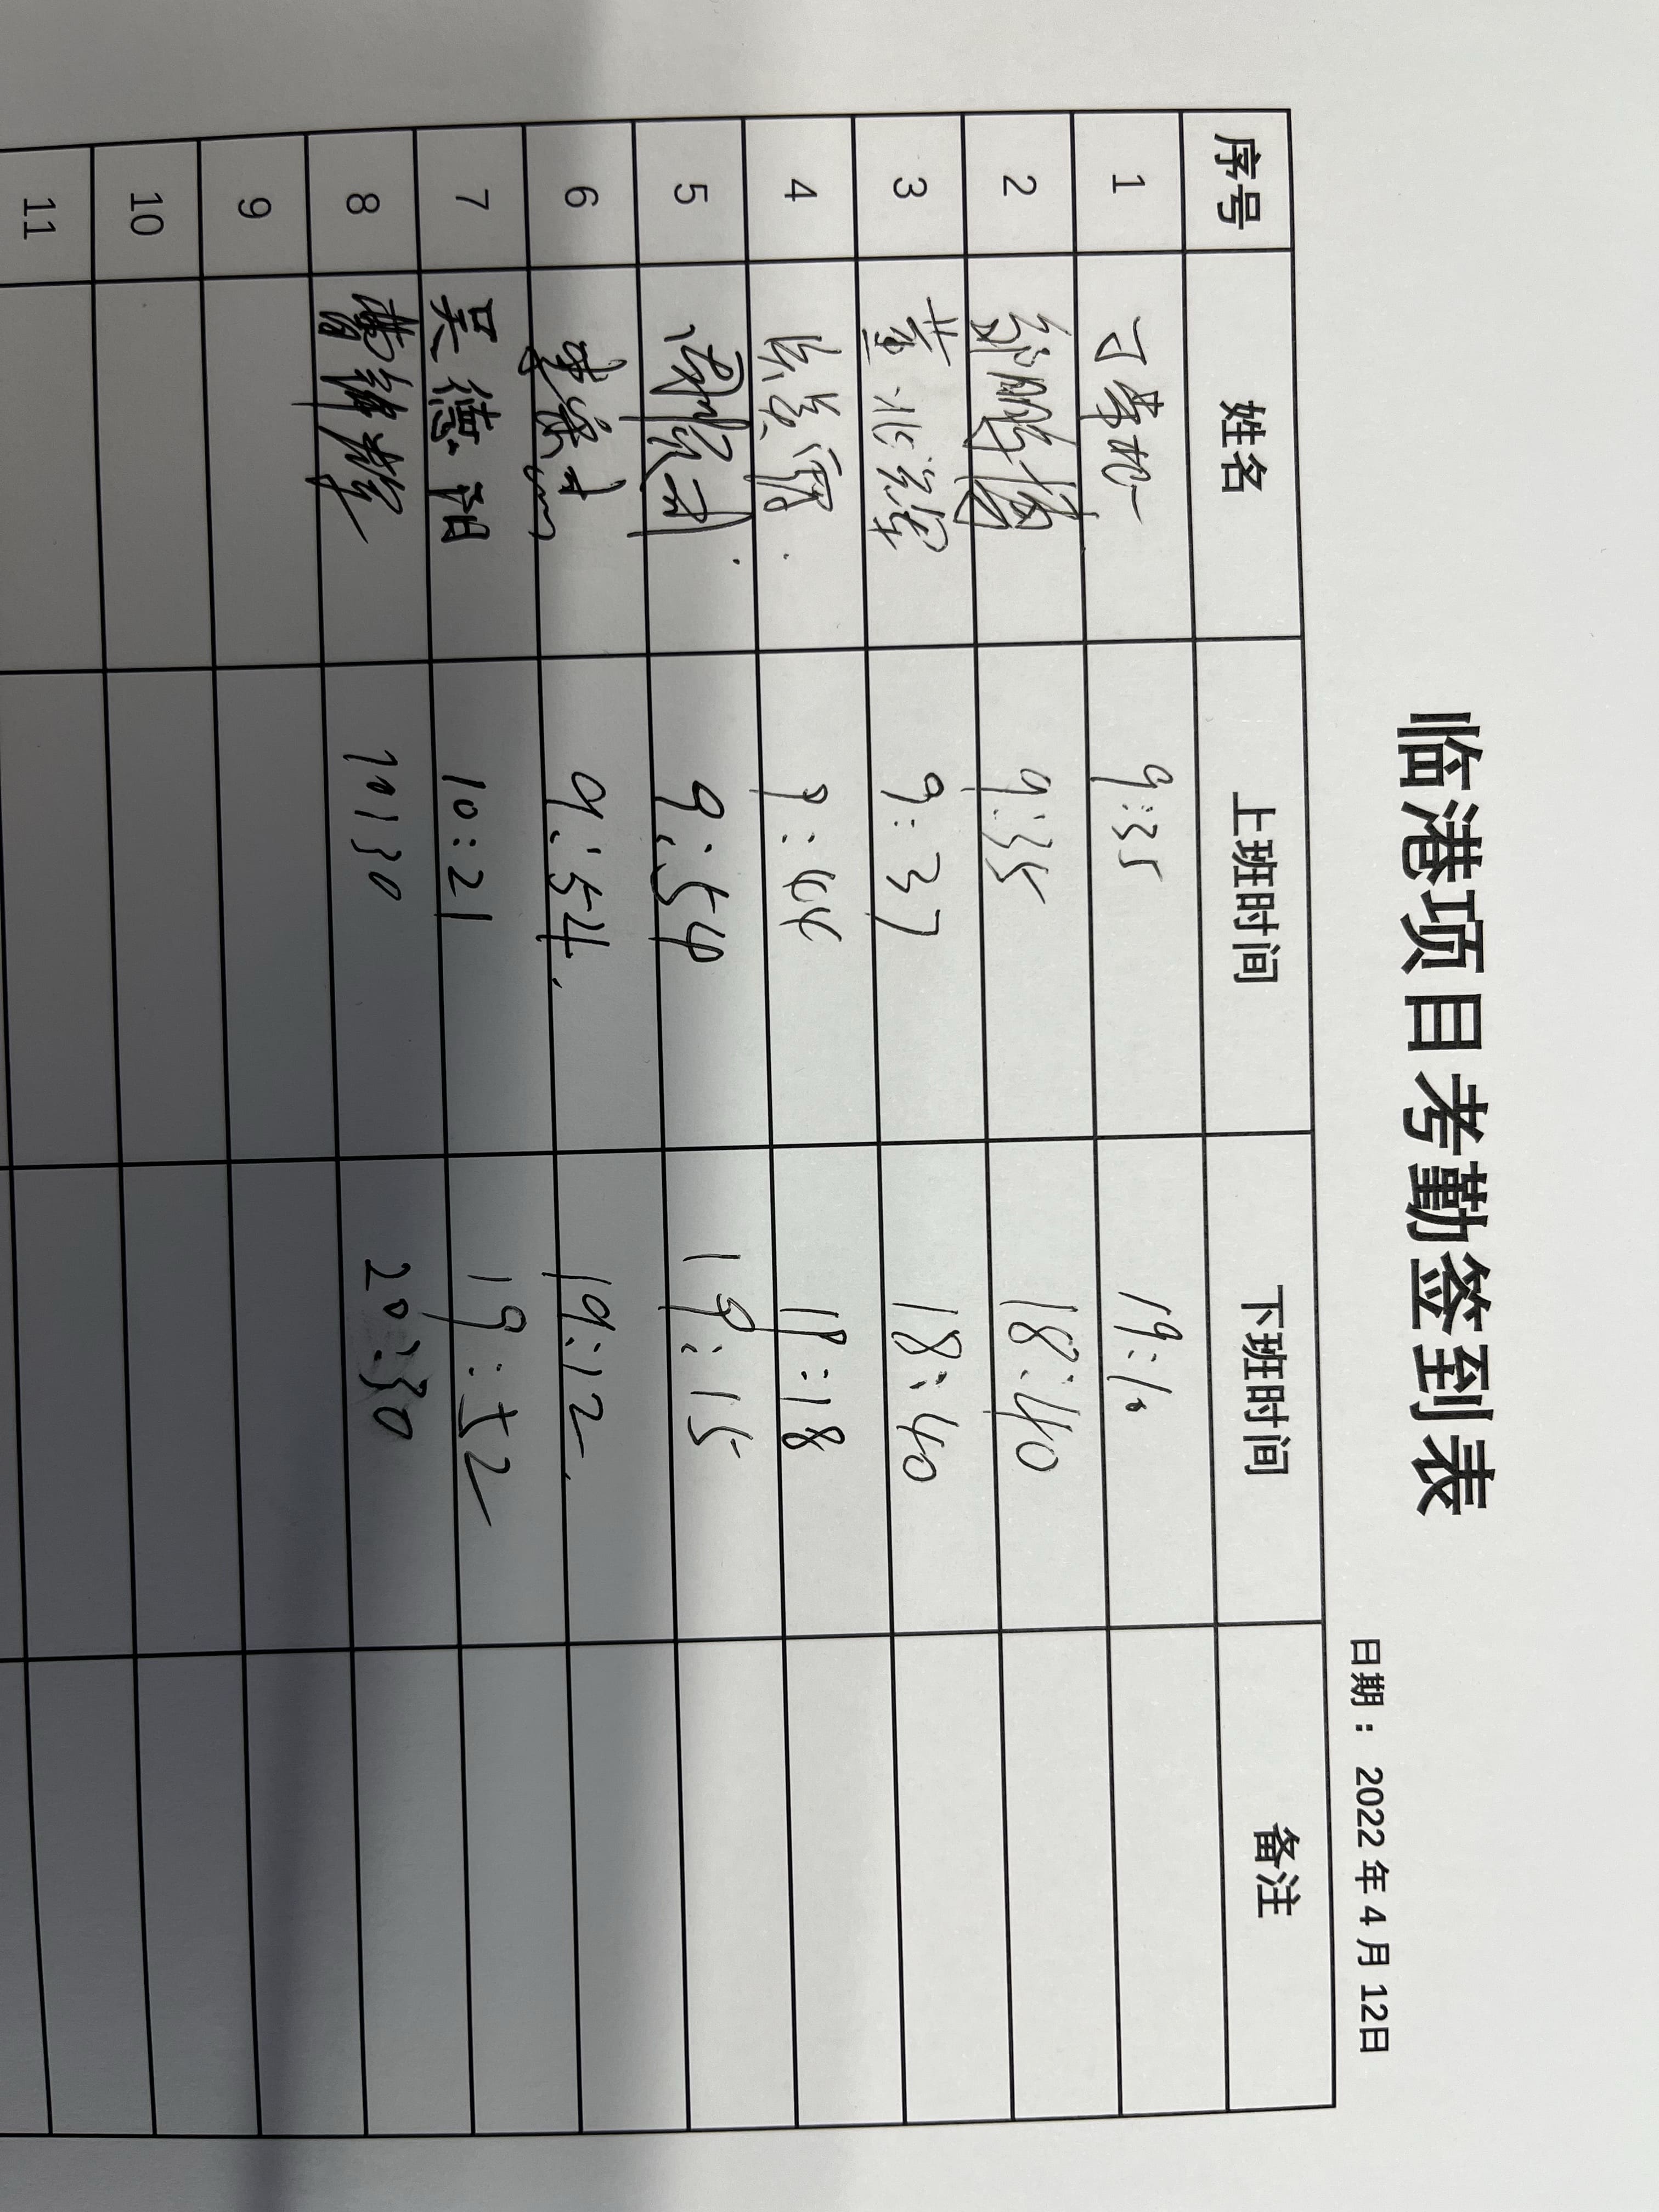 临港项目考勤签到表
日期： 2022 年 4 月 12日
序号 姓名 上班时间 下班时间 备注
1 9:35 19:10
2 邹鹏博 9:35 18:40
3 董兆辉 9:37 18:40
4 9:44 19:18
5 周顺利 9:54 19:15
6 李宗杰 9:54. 19:12.
7 吴德阳 10:21 19:52
8 曹锋辉 10:30 20:30
9
10
11